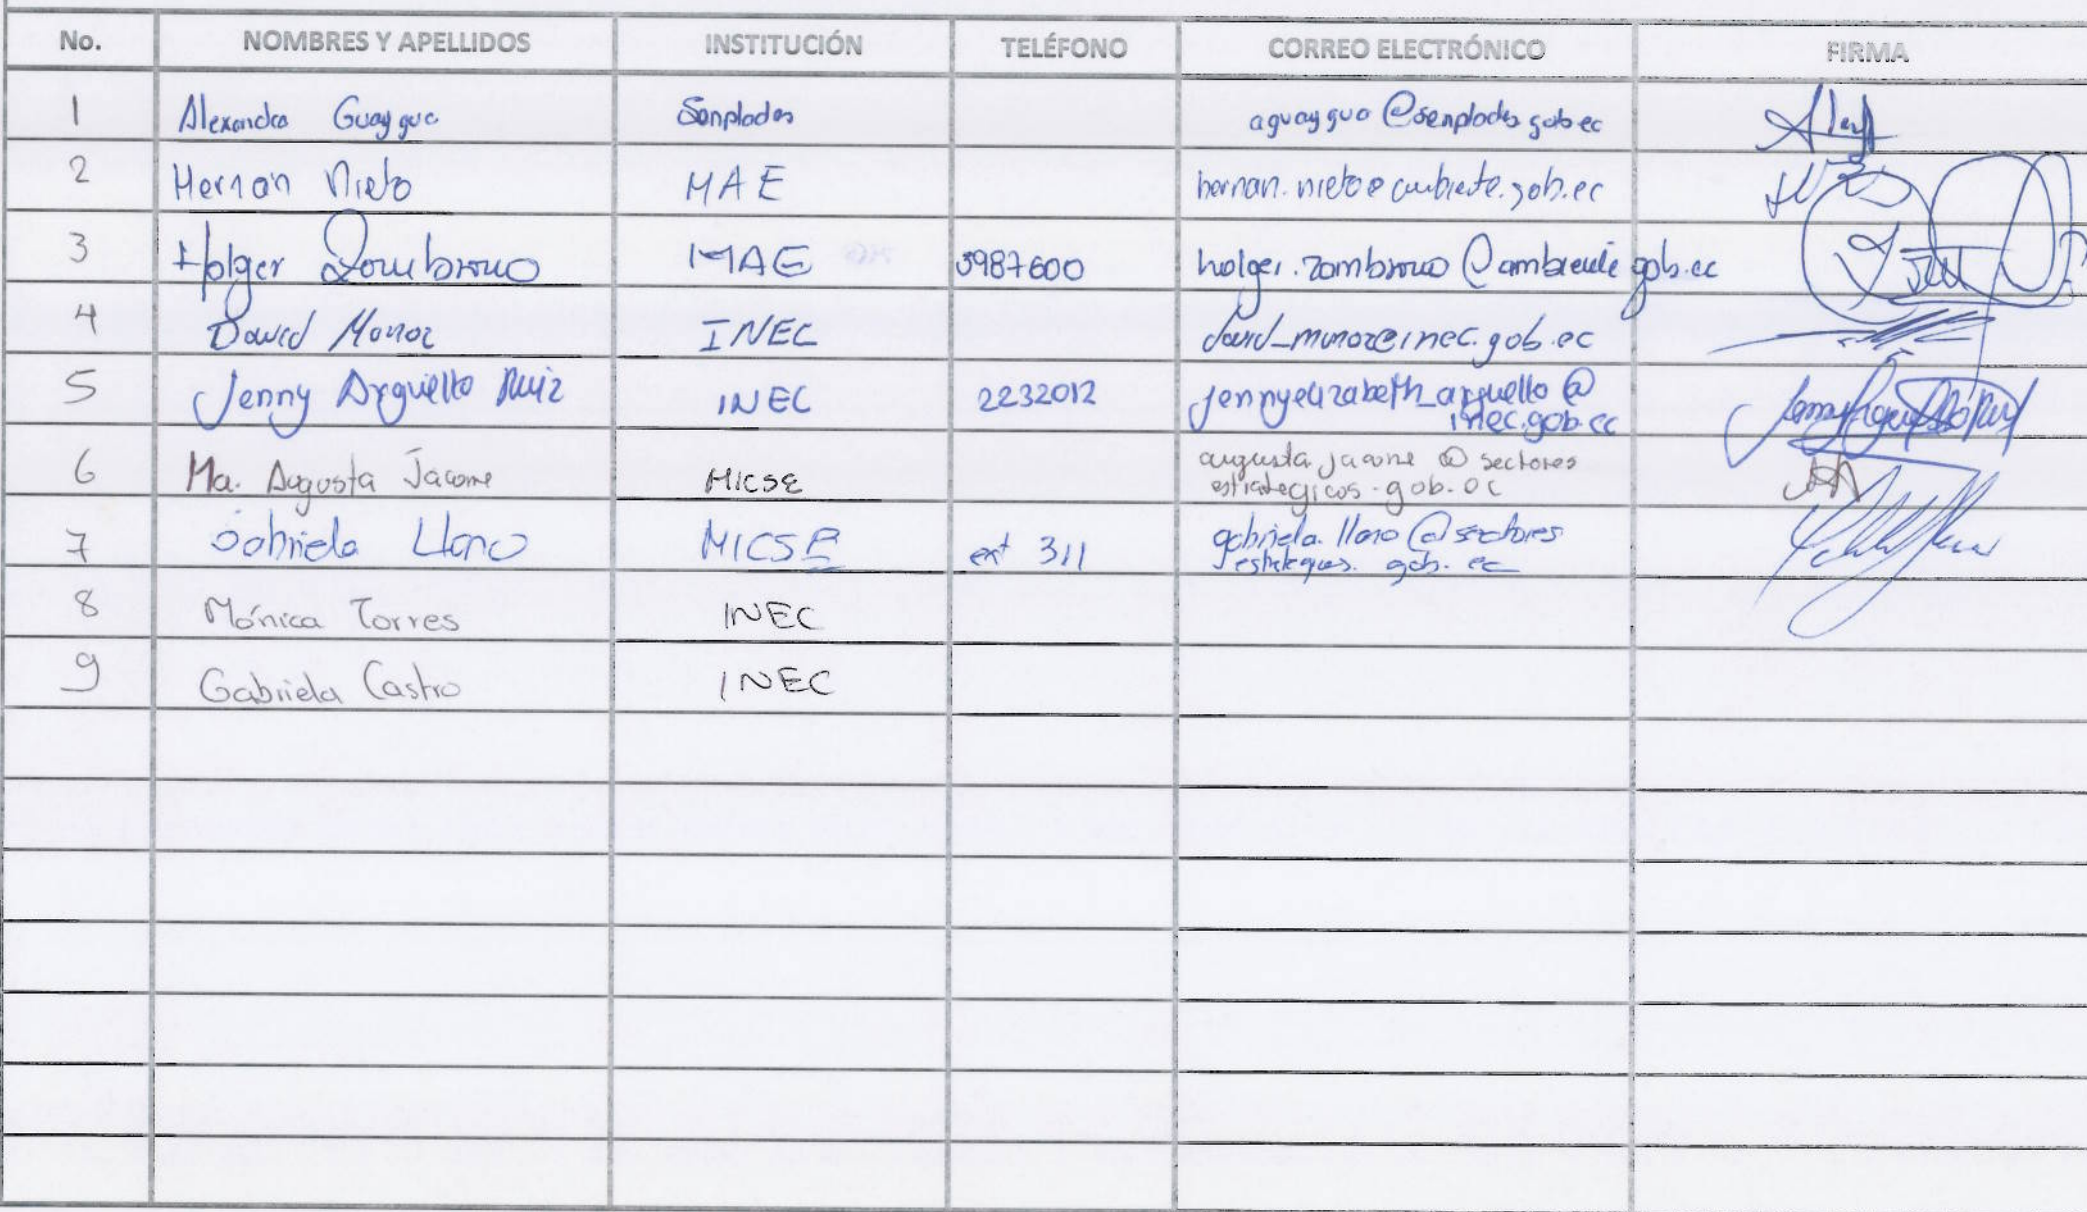 No. NOMBRES Y APELLIDOS INSTITUCIÓN TELÉFONO CORREO ELECTRÓNICO FIRMA
1 Alexandra Guaygua Senplades aguaygua@senplades.gob.ec
2 Hernán Nieto MAE hernan.nieto@ambiente.gob.ec
3 Holger Zambrano MAE 3987600 holger.zambrano@ambiente.gob.ec
4 David Muñoz INEC david_munoz@inec.gob.ec
5 Jenny Arguello Ruiz INEC 2232012 jennyelizabeth_arguello@
inec.gob.ec
6 Ma. Augusta Jacome MICSE augusta.jacome@sectores
estrategicos.gob.ec
7 Gabriela Llano MICSE ext 311 gabriela.llano@sectores
estrategicos.gob.ec
8 Mónica Torres INEC
9 Gabriela Castro INEC